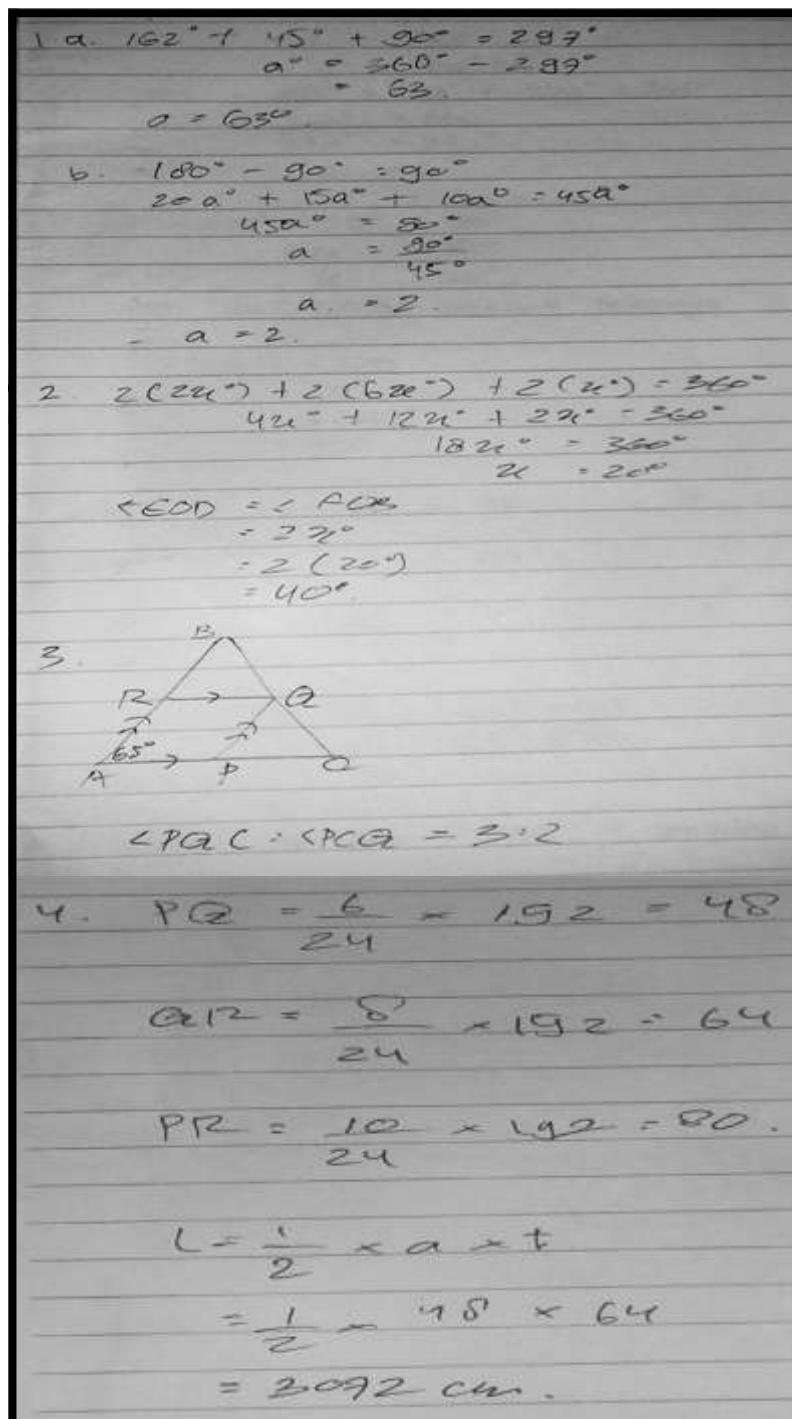 1 a. 162° + 45° + 90° = 297°
a° = 360° - 297°
= 63.
a = 63°.
b. 180° - 90° = 90°
20a° + 15a° + 10a° = 45a°
45a° = 90°
a = 90°/45°
a = 2.
- a = 2.
2. 2(2x°) + 2(6x°) + 2(x°) = 360°
4x° + 12x° + 2x° = 360°
18x° = 360°
x = 20°
<EOD = < AOB
= 2x°
= 2(20°)
= 40°.
3.
B
R Q
65°
A P C
<PQC : <PCQ = 3:2
4. PQ = 6/24 × 192 = 48
QR = 8/24 × 192 = 64
PR = 10/24 × 192 = 80.
L = 1/2 × a × t
= 1/2 × 48 × 64
= 3092 cm.